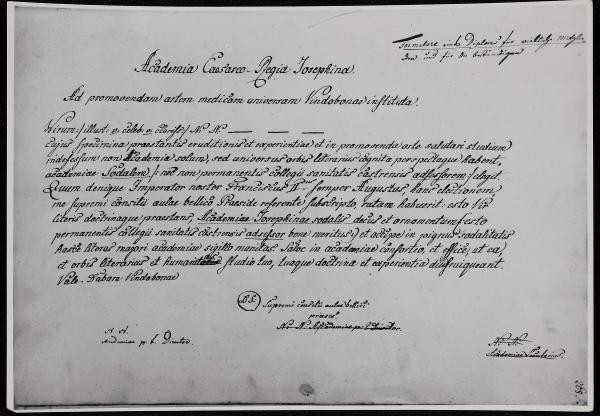 Formulare eines Diploms für
Academia Caesareo-Regia Josephina.
Ad promovendam artem medicam universam Vindobonae instituta.
Virum :/ illust: v. celeb: v. clariss: / N. N. — — —
cujus specimina praestantis eruditionis et experientiae et in promovenda arte salutari studium
indefessum non Academia solum, sed universus orbis literarius cognita perspectaque habent,
academiae Sodalem / nec non permanentis collegii sanitatis castrensis adsessorem / elegit.
Quum denique Imperator noster Franciscus II. Semper Augustus, hanc electionem,
me supremi consilii aulae bellico Praeside referente subscripto, ratam habuerit: esto Vir
literis doctrinaque praestans, Academiae Josephinae sodalis decus et ornamentum / esto
permanentis collegii sanitatis castrensis adsessor bene meritus / et accipe in pignus sodalitatis
hasce literas majori academiae sigillo munitas. Salve in academiae consortio, et effice, ut ea,
et orbis literarius et humanitas studio tuo, tuaque doctrina et experientia diu fruiqueant.
Vale. Dabam Vindobonae
L.S.
Supremi consilii aulae bellici
praeses.
N. N. Academiae p. t. Director.
N. N.
Academiae p. t. Director.
N. N.
Academiae Secretarius.